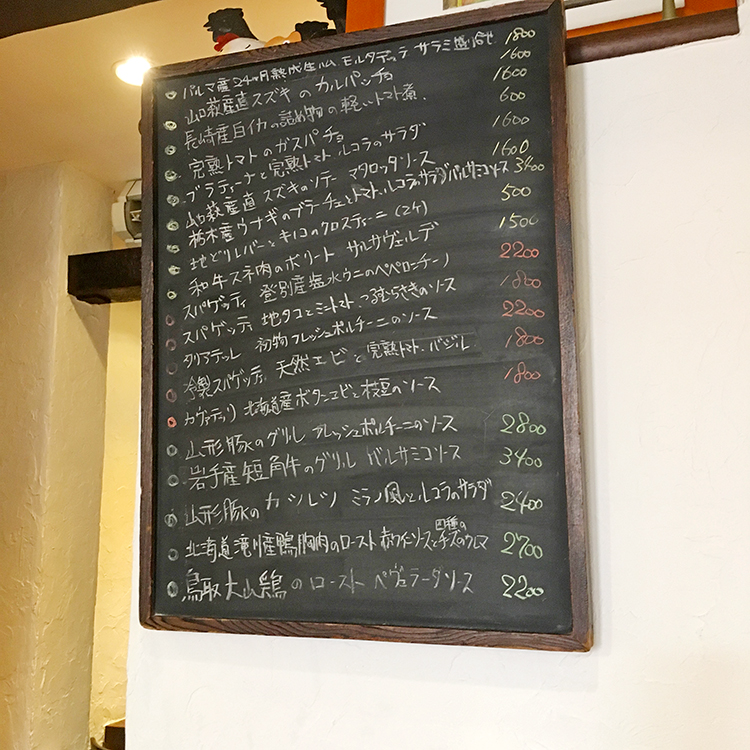 パルマ産24ヶ月熟成生ハム モルタデッラ サラミ盛合せ 1800
山口萩産直スズキのカルパッチョ 1600
長崎産白イカの詰め物の軽いトマト煮. 1600
完熟トマトのガスパチョ 600
ブラティーナと完熟トマト ルコラのサラダ 1600
山口萩産直 スズキのソテー マタロッタソース 1600
栃木産ウナギのブラーチェとトマト、ルコラのサラダバルサミコソース 3400
地どりレバーとキノコのクロスティーニ (2ケ) 500
和牛スネ肉のボリート サルサヴェルデ 1500
スパゲッティ 登別産塩水ウニのペペロンチーノ 2200
スパゲッティ 地タコとミニトマト、つるむらさきのソース 1800
タリアテッレ 初物フレッシュポルチーニのソース 2200
冷製スパゲッティ 天然エビと完熟トマト、バジル 1800
カヴァテッリ 北海道産ボタンエビと枝豆のソース 1800
山形豚のグリル フレッシュポルチーニのソース 2800
岩手産短角牛のグリル バルサミコソース 3400
山形豚のカツレツ ミラノ風とルコラのサラダ 2400
北海道滝川産鴨胸肉のロースト 赤ワインソースと四種のチーズのクレマ 2700
鳥取大山鶏のロースト ペヴェラーダソース 2200